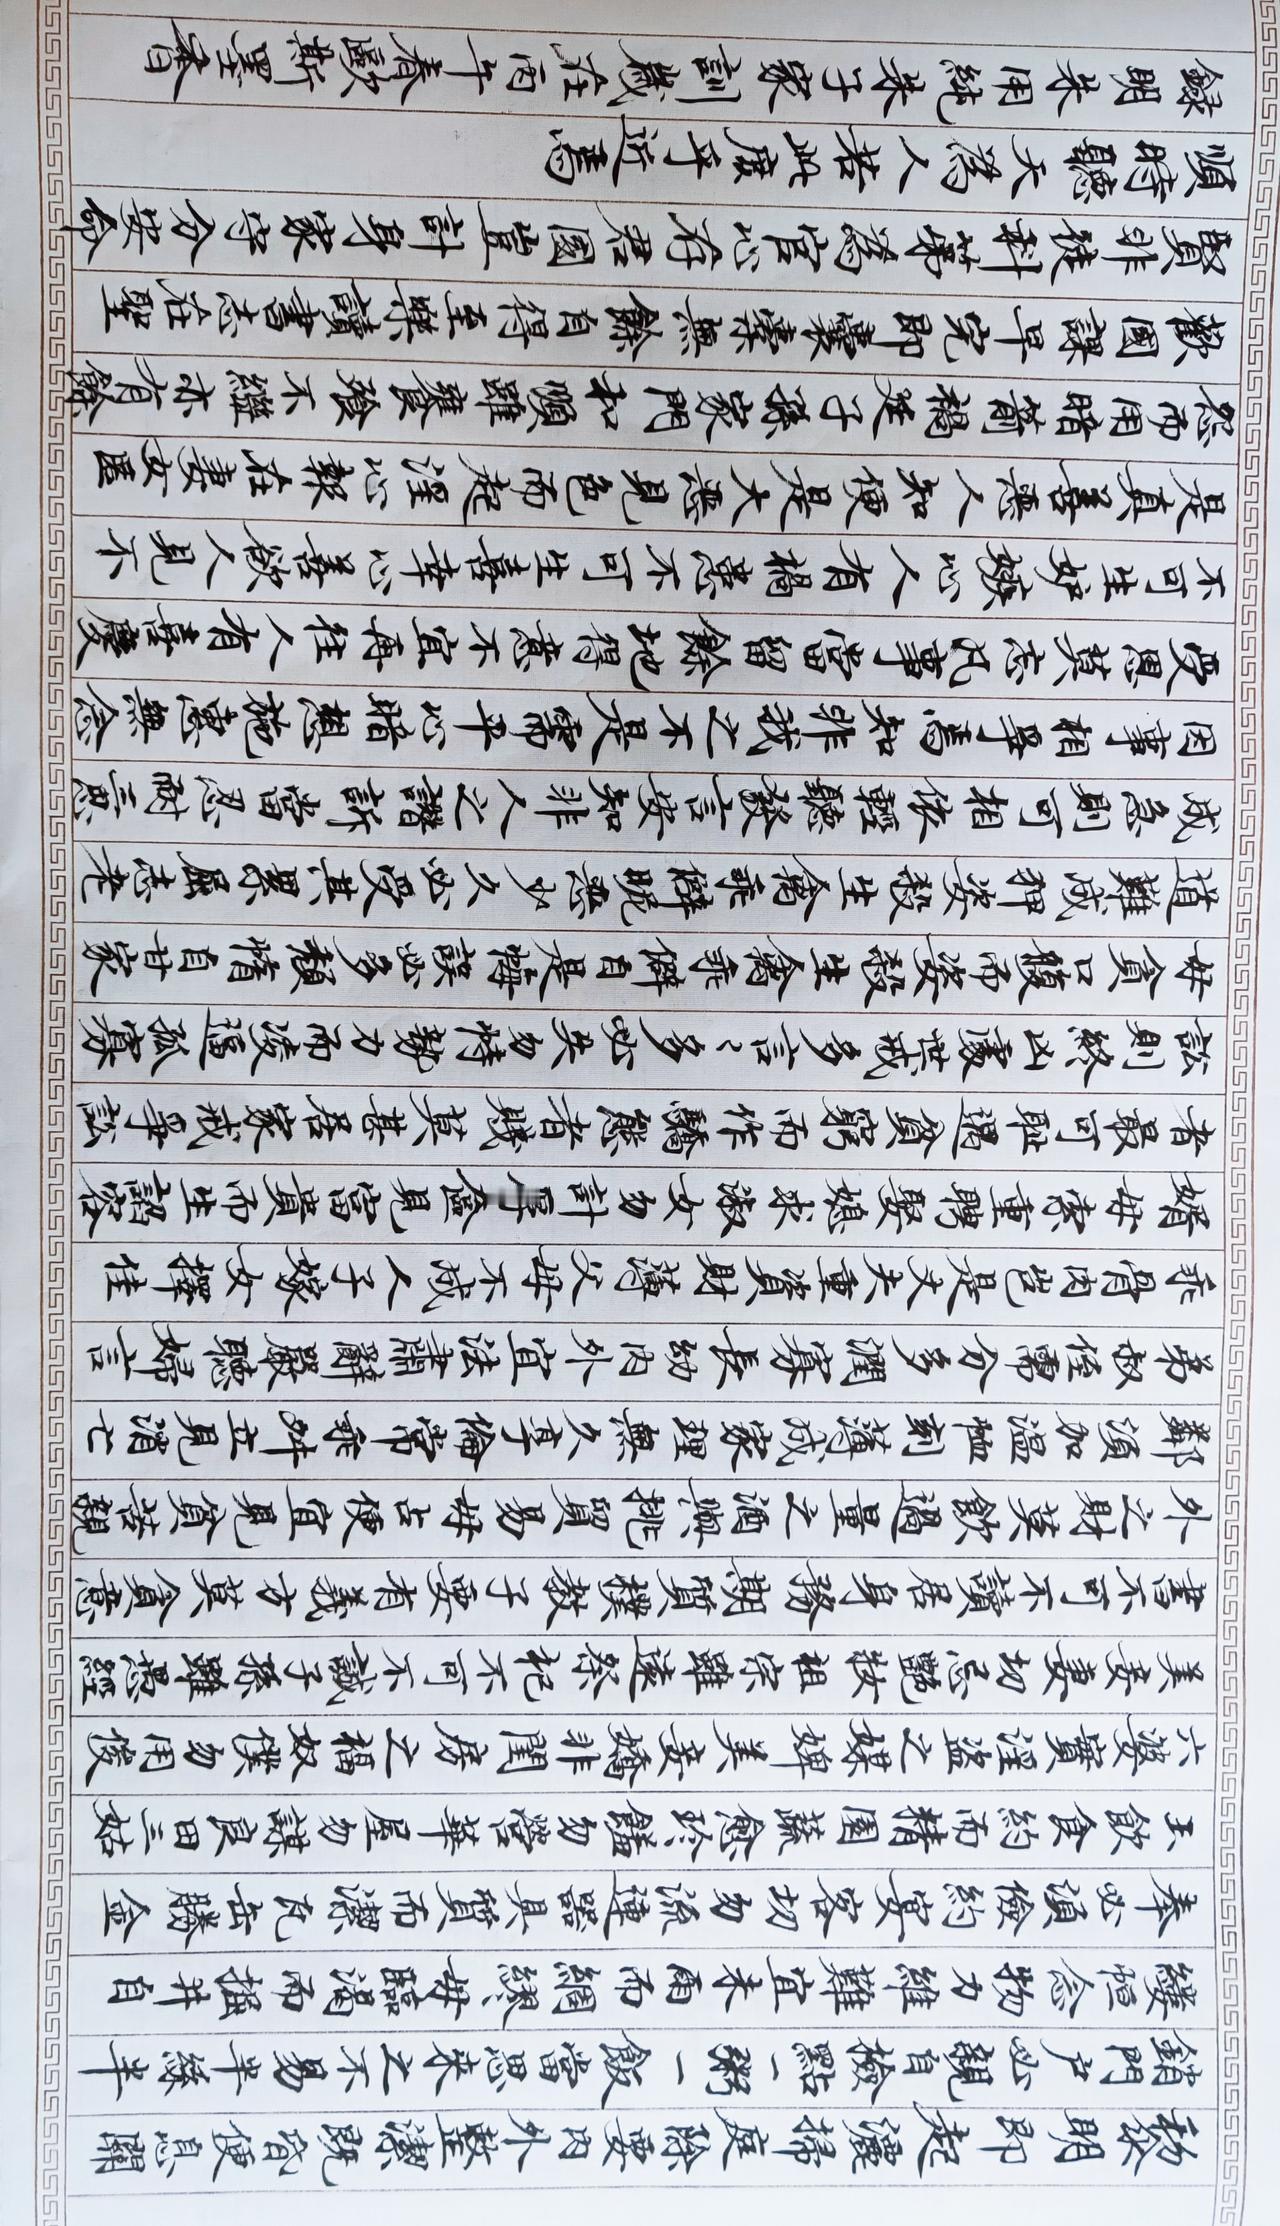 黎明即起灑掃庭除要內外整潔既昏便息關
鎖門戶必親自檢點一粥一飯當思來之不易半絲半
縷恒念物力維難宜未雨而綢繆毋臨渴而掘井自
奉必須儉約宴客切勿流連器具質而潔瓦缶勝金
玉飲食約而精園蔬愈珍饈勿營華屋勿謀良田三姑
六婆實淫盜之媒婢美妾嬌非閨房之福奴僕勿用俊
美妻妾切忌艷妝祖宗雖遠祭祀不可不誠子孫雖愚經
書不可不讀居身務期質樸教子要有義方莫貪意
外之財莫飲過量之酒與挑貿易毋占便宜見貧苦親
鄰須加溫恤刻薄成家理無久享倫常乖舛立見消亡
弟叔侄需分多潤寡長幼內外宜法肅辭嚴聽婦言
乖骨肉豈是丈夫重資財薄父母不成人子嫁女擇佳
婿毋索重聘娶媳求淑女勿計厚奩見富貴而生諂容
者最可恥遇貧窮而作驕態者賤莫甚居家戒爭訟
訟則終凶處世戒多言〻多必失勿恃勢力而淩逼孤寡
毋貪口腹而恣殺生禽乖僻自是悔誤必多頹惰自甘家
道難成狎恣殺生禽乖僻昵惡少久必受其累屈志老
成急則可相依輕聽發言安知非人之譖訴當忍耐三思
因事相爭焉知非我之不是需平心暗想施惠無念
受恩莫忘凡事當留餘地得意不宜再往人有喜慶
不可生妒嫉心人有禍患不可生喜幸心善欲人見不
是真善惡人知便是大惡見色而起淫心報在妻女匿
怨而用暗箭禍延子孫家門和順雖饔飧不繼亦有餘
歡國課早完即囊橐無餘自得至樂讀書志在聖
賢非徒科第為官心存君國豈計身家守分安命
順時聽天為人若此庶乎近焉
錄明朱用純朱子家訓歲在丙午春歐斯墨書